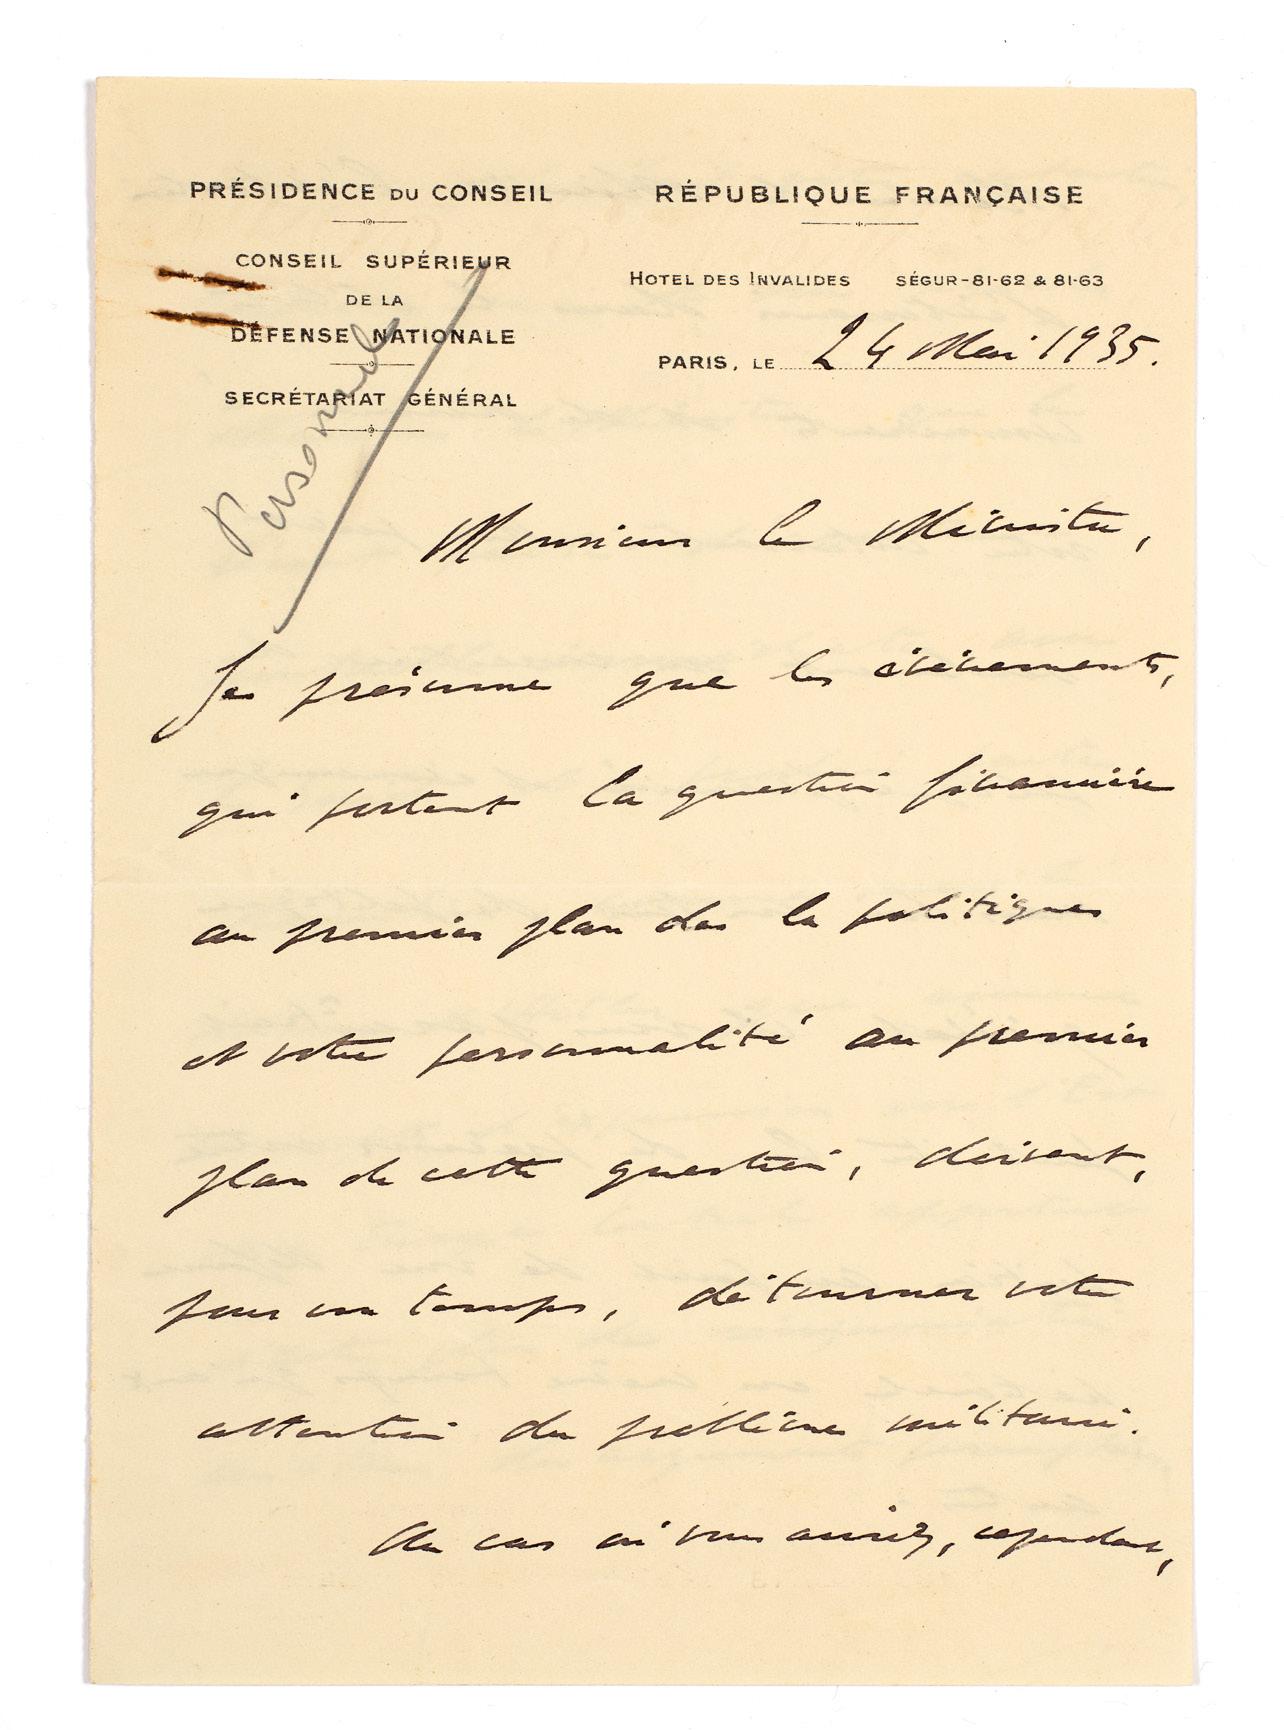 PRÉSIDENCE DU CONSEIL
CONSEIL SUPÉRIEUR
DE LA
DÉFENSE NATIONALE
SECRÉTARIAT GÉNÉRAL
RÉPUBLIQUE FRANÇAISE
HOTEL DES INVALIDES SÉGUR-81-62 & 81-63
PARIS, LE 24 Mai 1935.
Personnelle
Monsieur le Ministre,
Je présume que les événements,
qui portent la question financière
au premier plan de la politique
et votre personnalité au premier
plan de cette question, doivent,
pour un temps, détourner votre
attention du problème militaire.
Au cas où vous auriez, cependant,